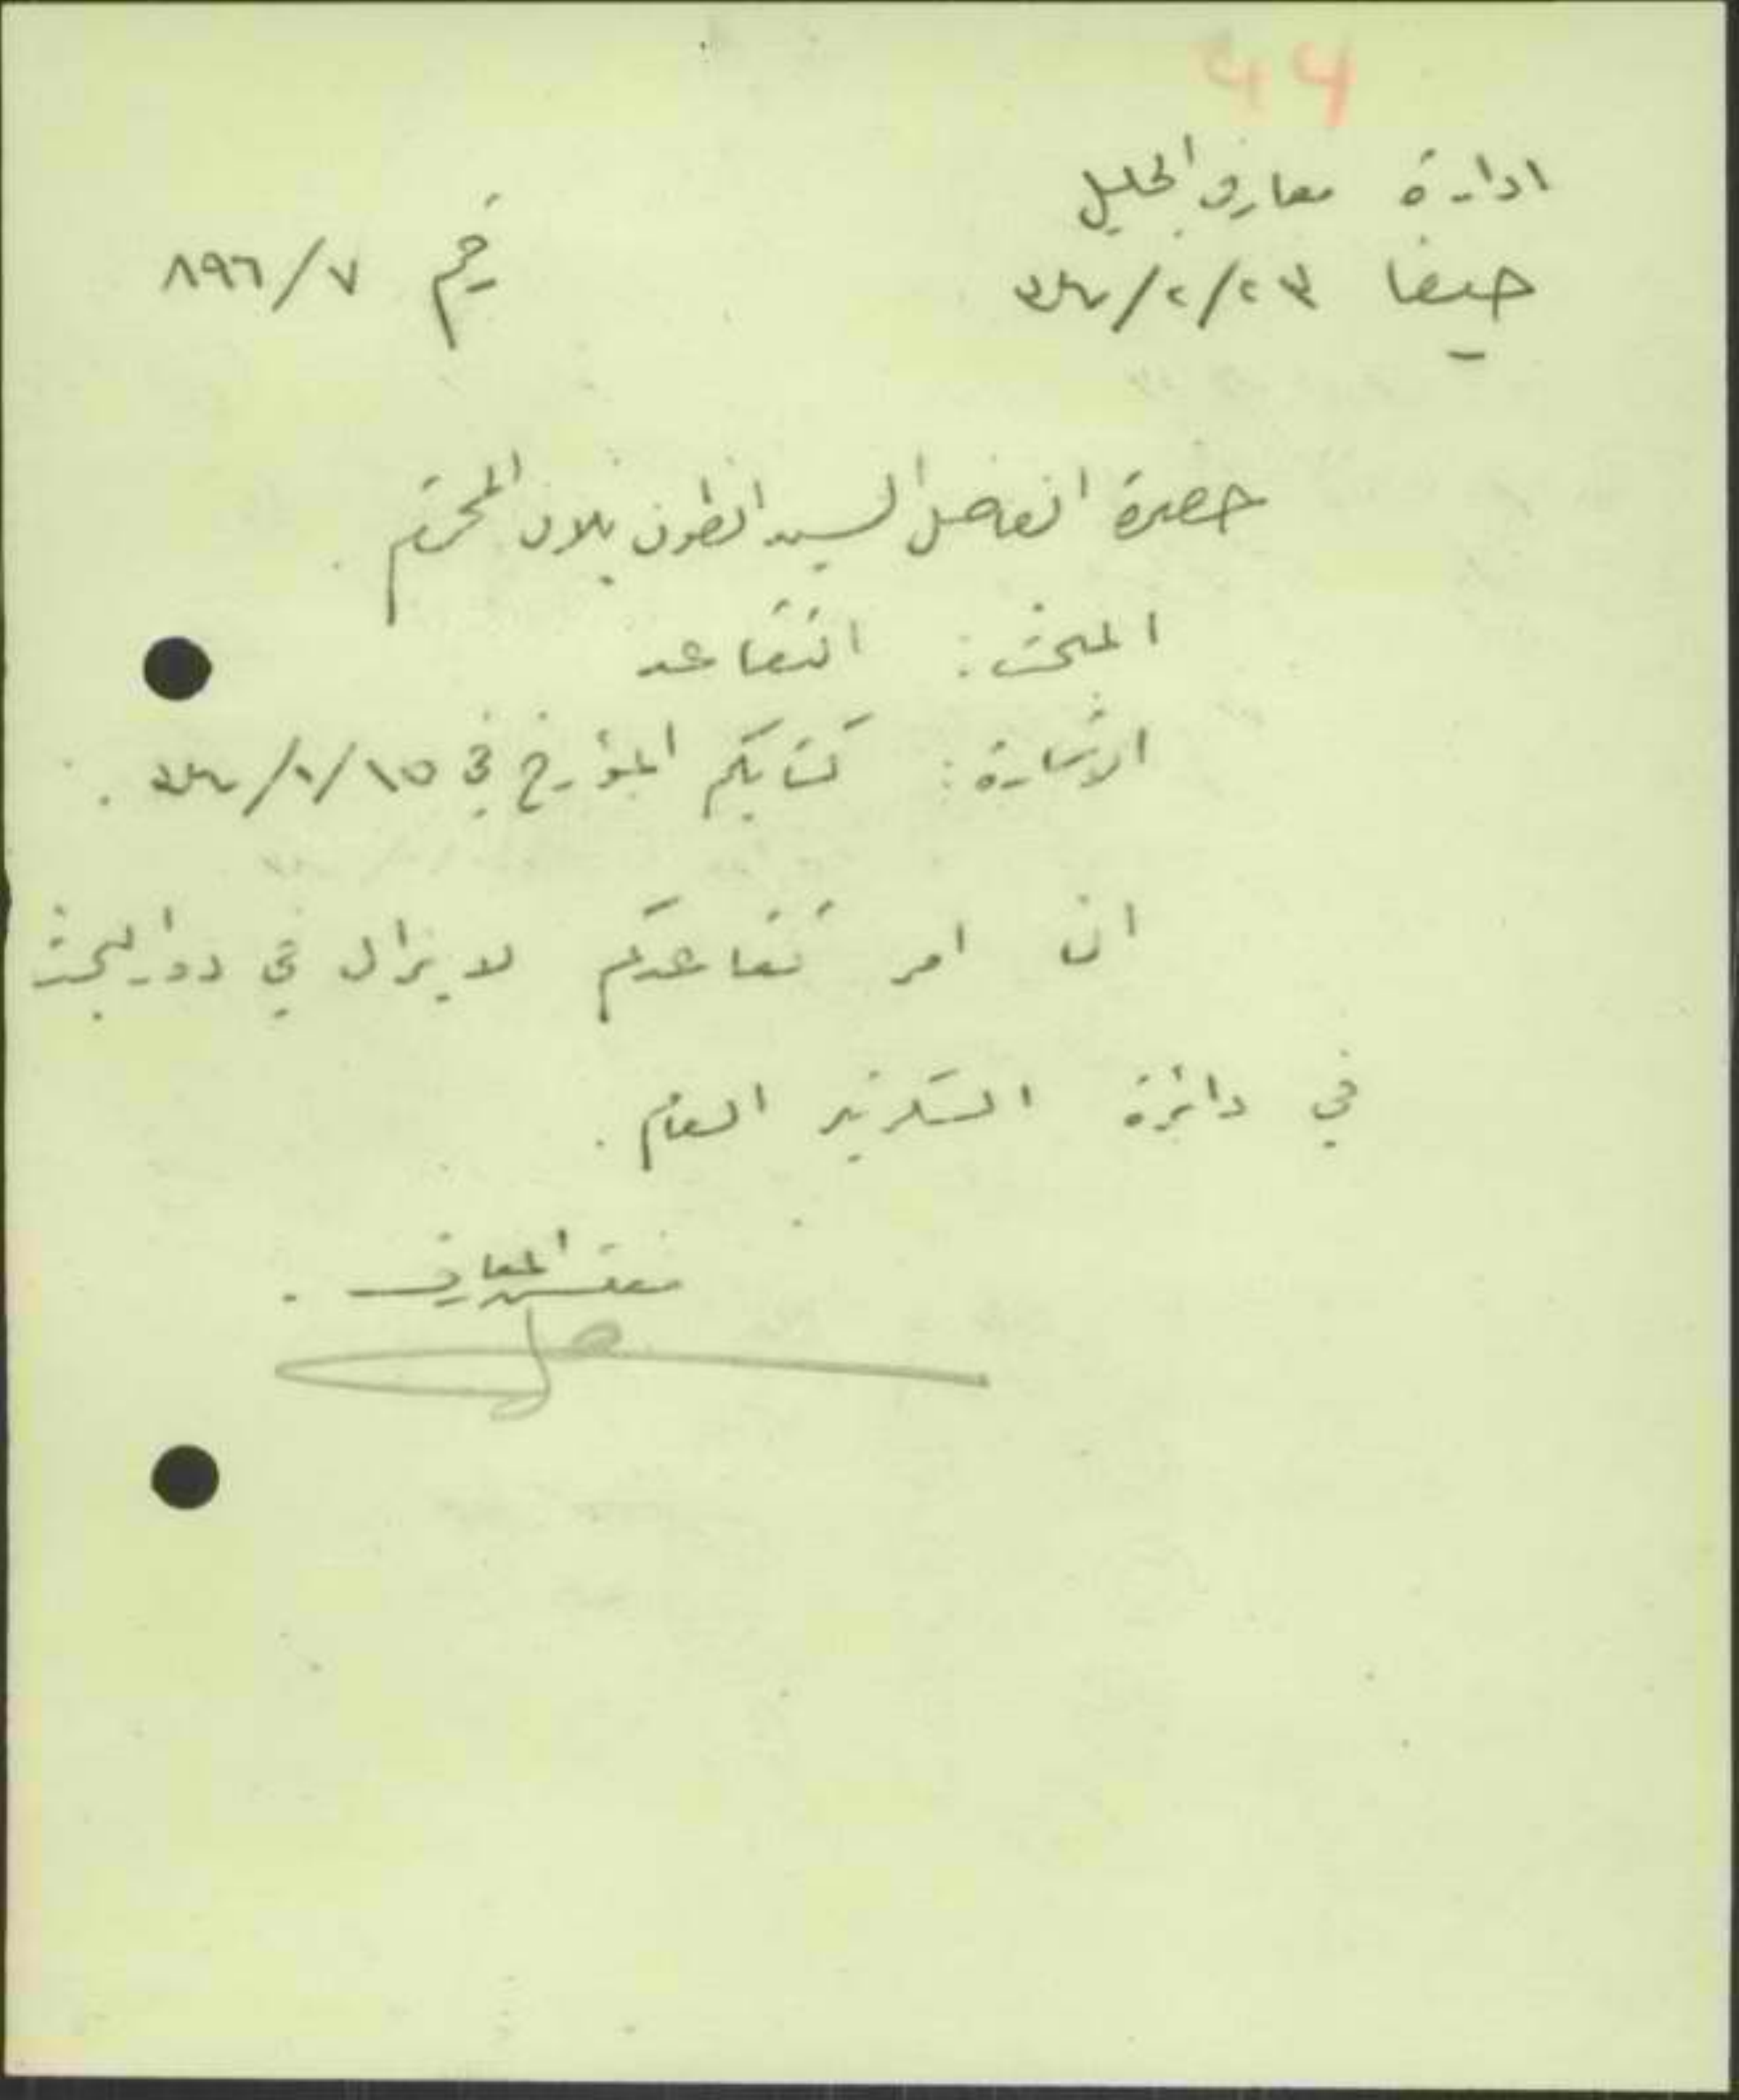 44
ادارة معارف الجليل
حيفا ٢٣/٢/٣٤ ٧/٨٩٦
حضرة الفاضل السيد انطون بلان المحترم .
المبحث : التقاعد
الاشارة : كتابكم المؤرخ في ١٥/١/٣٤ .
ان امر تقاعدكم لا يزال في دور البحث
في دائرة السكرتير العام .
مفتش المعارف .